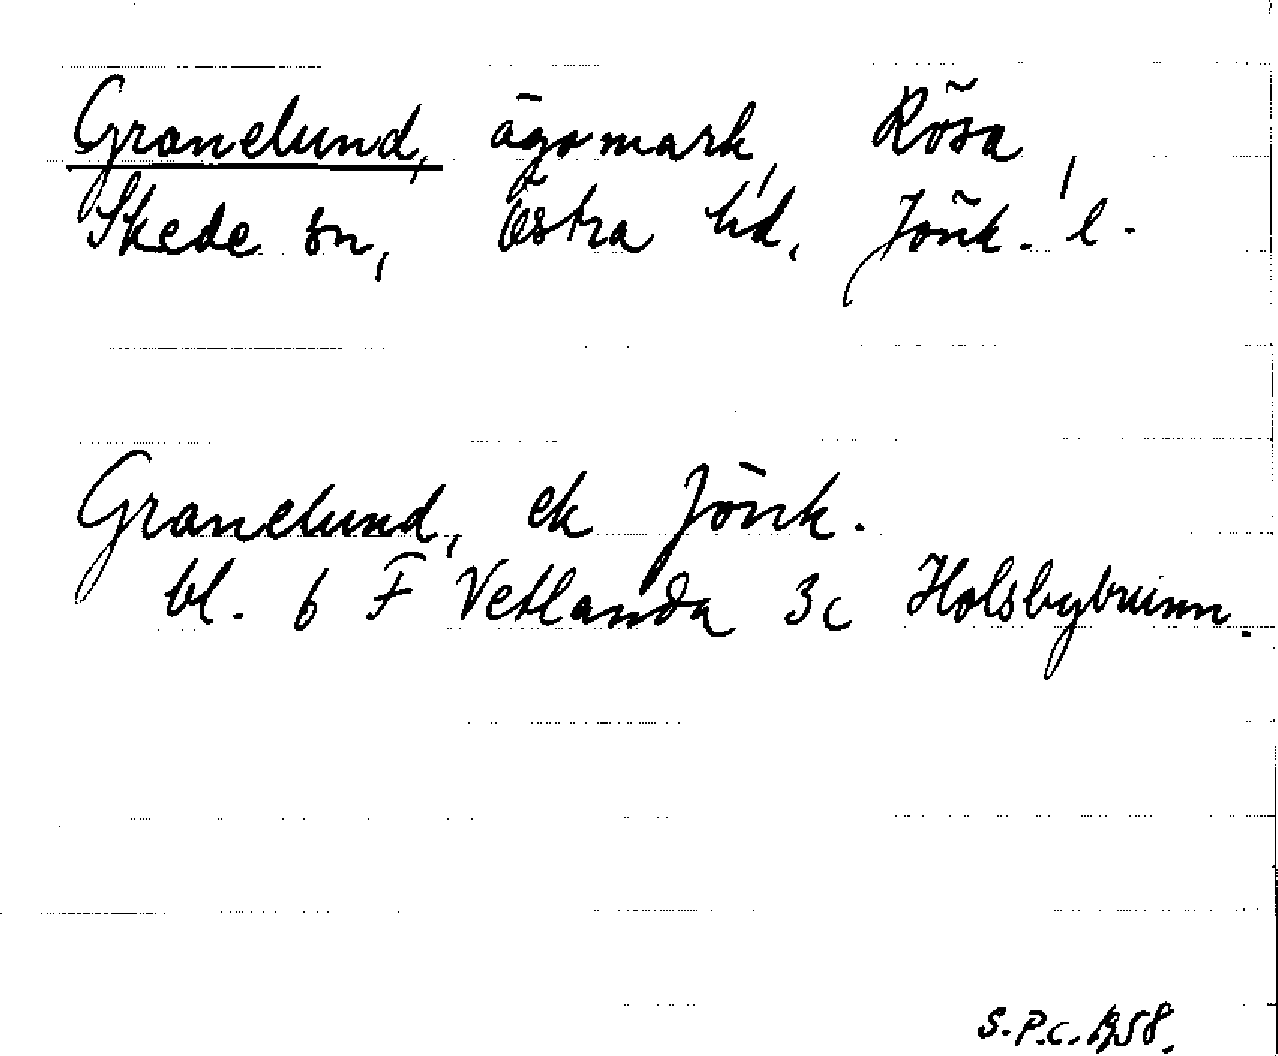 Granelund, ägomark, Rösa,
Skede sn, Östra hd, Jönk. l.
Granelund, ek Jönk.
bl. 6 F Vetlanda 3c Holsbybrunn.
S.P.C. 1958.